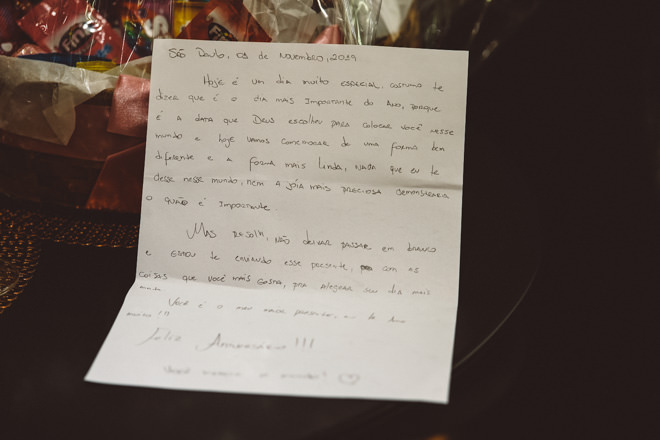 Fini
São Paulo, 03 de Novembro, 2019
Hoje é um dia muito especial, costumo te
dizer que é o dia mais importante do ano, porque
é a data que Deus escolheu para colocar você nesse
mundo e hoje vamos comemorar de uma forma bem
diferente e a forma mais linda, nada que eu te
desse nesse mundo, nem a jóia mais preciosa demonstraria
o quão é importante.
Mas resolvi, não deixar passar em branco
e estou te enviando esse presente, com as
coisas que você mais gosta, pra alegrar seu dia mais
ainda.
Você é o meu maior presente, eu te amo
muito !!!
Feliz Aniversário !!!